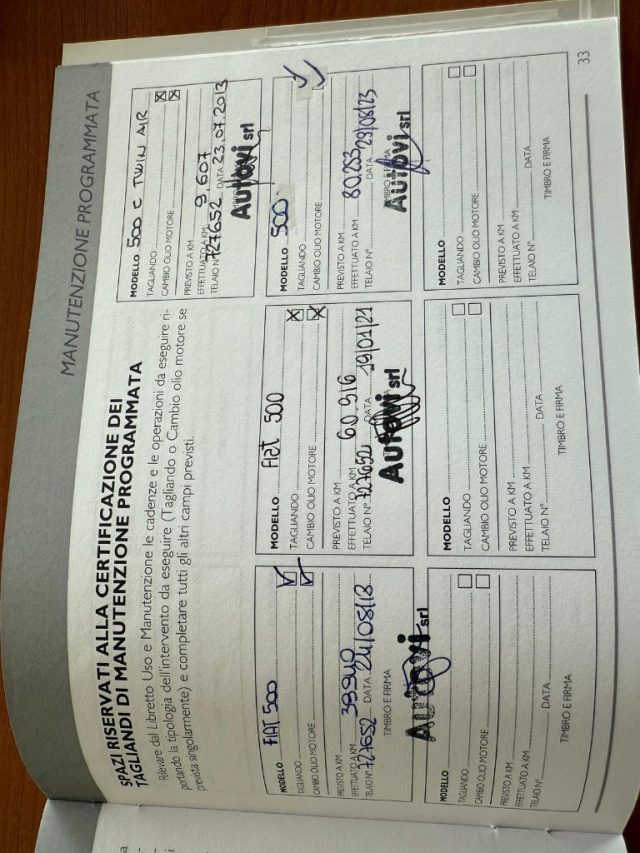 MANUTENZIONE PROGRAMMATA
SPAZI RISERVATI ALLA CERTIFICAZIONE DEI
TAGLIANDI DI MANUTENZIONE PROGRAMMATA
Rilevare dal Libretto Uso e Manutenzione le cadenze e le operazioni da eseguire ri-
portando la tipologia dell'intervento da eseguire (Tagliando o Cambio olio motore se
prevista singolarmente) e completare tutti gli altri campi previsti.
MODELLO 500 C TWIN AIR
TAGLIANDO
CAMBIO OLIO MOTORE
PREVISTO A KM
EFFETTUATO A KM 9.607
TELAIO N° 727652 DATA 23.07.2013
Autovi srl
MODELLO FIAT 500
TAGLIANDO
CAMBIO OLIO MOTORE
PREVISTO A KM
EFFETTUATO A KM 39940
TELAIO N° 727652 DATA 24/08/18
TIMBRO E FIRMA
Autovi srl
MODELLO Fiat 500
TAGLIANDO
CAMBIO OLIO MOTORE
PREVISTO A KM
EFFETTUATO A KM 60.916
TELAIO N° 727652 DATA 19/01/21
Autovi srl
MODELLO 500
TAGLIANDO
CAMBIO OLIO MOTORE
PREVISTO A KM
EFFETTUATO A KM 80.253
TELAIO N° DATA 29/08/23
TIMBRO E FIRMA
Autovi srl
MODELLO
TAGLIANDO
CAMBIO OLIO MOTORE
PREVISTO A KM
EFFETTUATO A KM
TELAIO N° DATA
TIMBRO E FIRMA
MODELLO
TAGLIANDO
CAMBIO OLIO MOTORE
PREVISTO A KM
EFFETTUATO A KM
TELAIO N° DATA
TIMBRO E FIRMA
MODELLO
TAGLIANDO
CAMBIO OLIO MOTORE
PREVISTO A KM
EFFETTUATO A KM
TELAIO N° DATA
TIMBRO E FIRMA
33